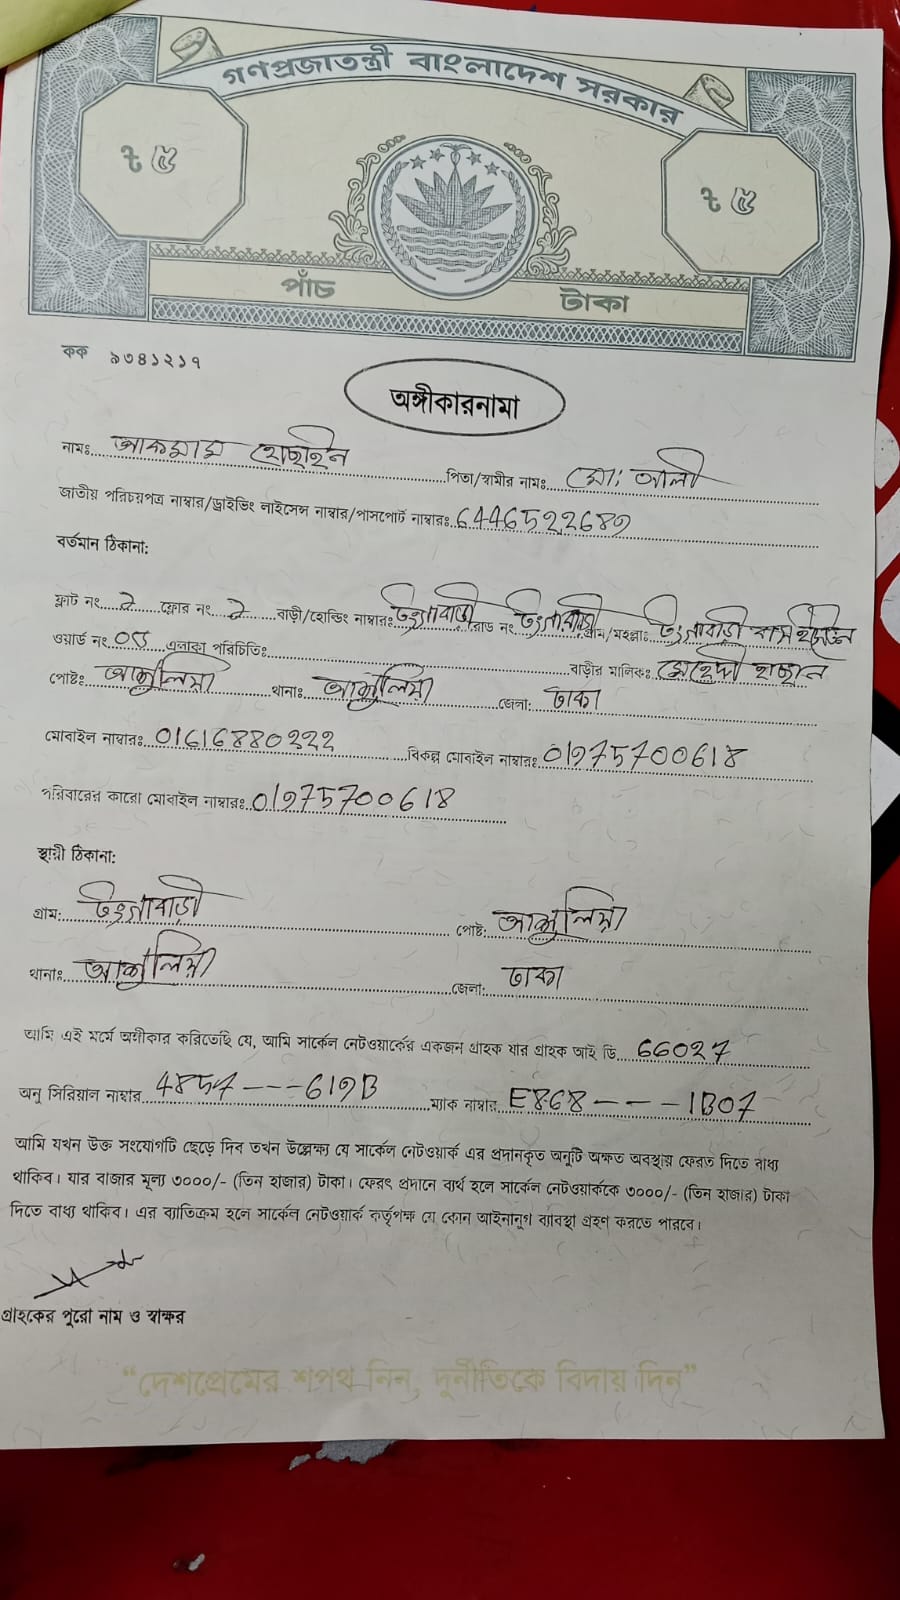 গণপ্রজাতন্ত্রী বাংলাদেশ সরকার
৳ ৫ ৳ ৫
পাঁচ টাকা
কক ৯৩৪১২১৭
অঙ্গীকারনামা
নামঃ আকরাম হোছাইন পিতা/স্বামীর নামঃ মো: আলী
জাতীয় পরিচয়পত্র নাম্বার/ড্রাইভিং লাইসেন্স নাম্বার/পাসপোর্ট নাম্বারঃ 6446522689
বর্তমান ঠিকানা:
ফ্লাট নং 2 ফ্লোর নং 2 বাড়ী/হোল্ডিং নাম্বারঃ টংগাবাড়ী রোড নং টংগাবাড়ী গ্রাম/মহল্লাঃ টংগাবাড়ী
ওয়ার্ড নং এলাকা পরিচিতিঃ বাড়ীর মালিকঃ মেহেদী হাছান
পোষ্টঃ আশুলিয়া থানাঃ আশুলিয়া জেলা: ঢাকা
মোবাইল নাম্বারঃ 01616880222 বিকল্প মোবাইল নাম্বারঃ 01975700618
পরিবারের কারো মোবাইল নাম্বারঃ 01975700618
স্থায়ী ঠিকানা:
গ্রাম: টংগাবাড়ী পোষ্ট: আশুলিয়া
থানাঃ আশুলিয়া জেলা: ঢাকা
আমি এই মর্মে অঙ্গীকার করিতেছি যে, আমি সার্কেল নেটওয়ার্কের একজন গ্রাহক যার গ্রাহক আই ডি 66027
অনু সিরিয়াল নাম্বার 4857---619B ম্যাক নাম্বার E868---1B07
আমি যখন উক্ত সংযোগটি ছেড়ে দিব তখন উল্লেক্ষ্য যে সার্কেল নেটওয়ার্ক এর প্রদানকৃত অনুটি অক্ষত অবস্থায় ফেরত দিতে বাধ্য
থাকিব। যার বাজার মূল্য ৩০০০/- (তিন হাজার) টাকা। ফেরৎ প্রদানে ব্যর্থ হলে সার্কেল নেটওয়ার্ককে ৩০০০/- (তিন হাজার) টাকা
দিতে বাধ্য থাকিব। এর ব্যাতিক্রম হলে সার্কেল নেটওয়ার্ক কর্তৃপক্ষ যে কোন আইনানুগ ব্যাবস্থা গ্রহণ করতে পারবে।
গ্রাহকের পুরো নাম ও স্বাক্ষর
“দেশপ্রেমের শপথ নিন, দুর্নীতিকে বিদায় দিন”